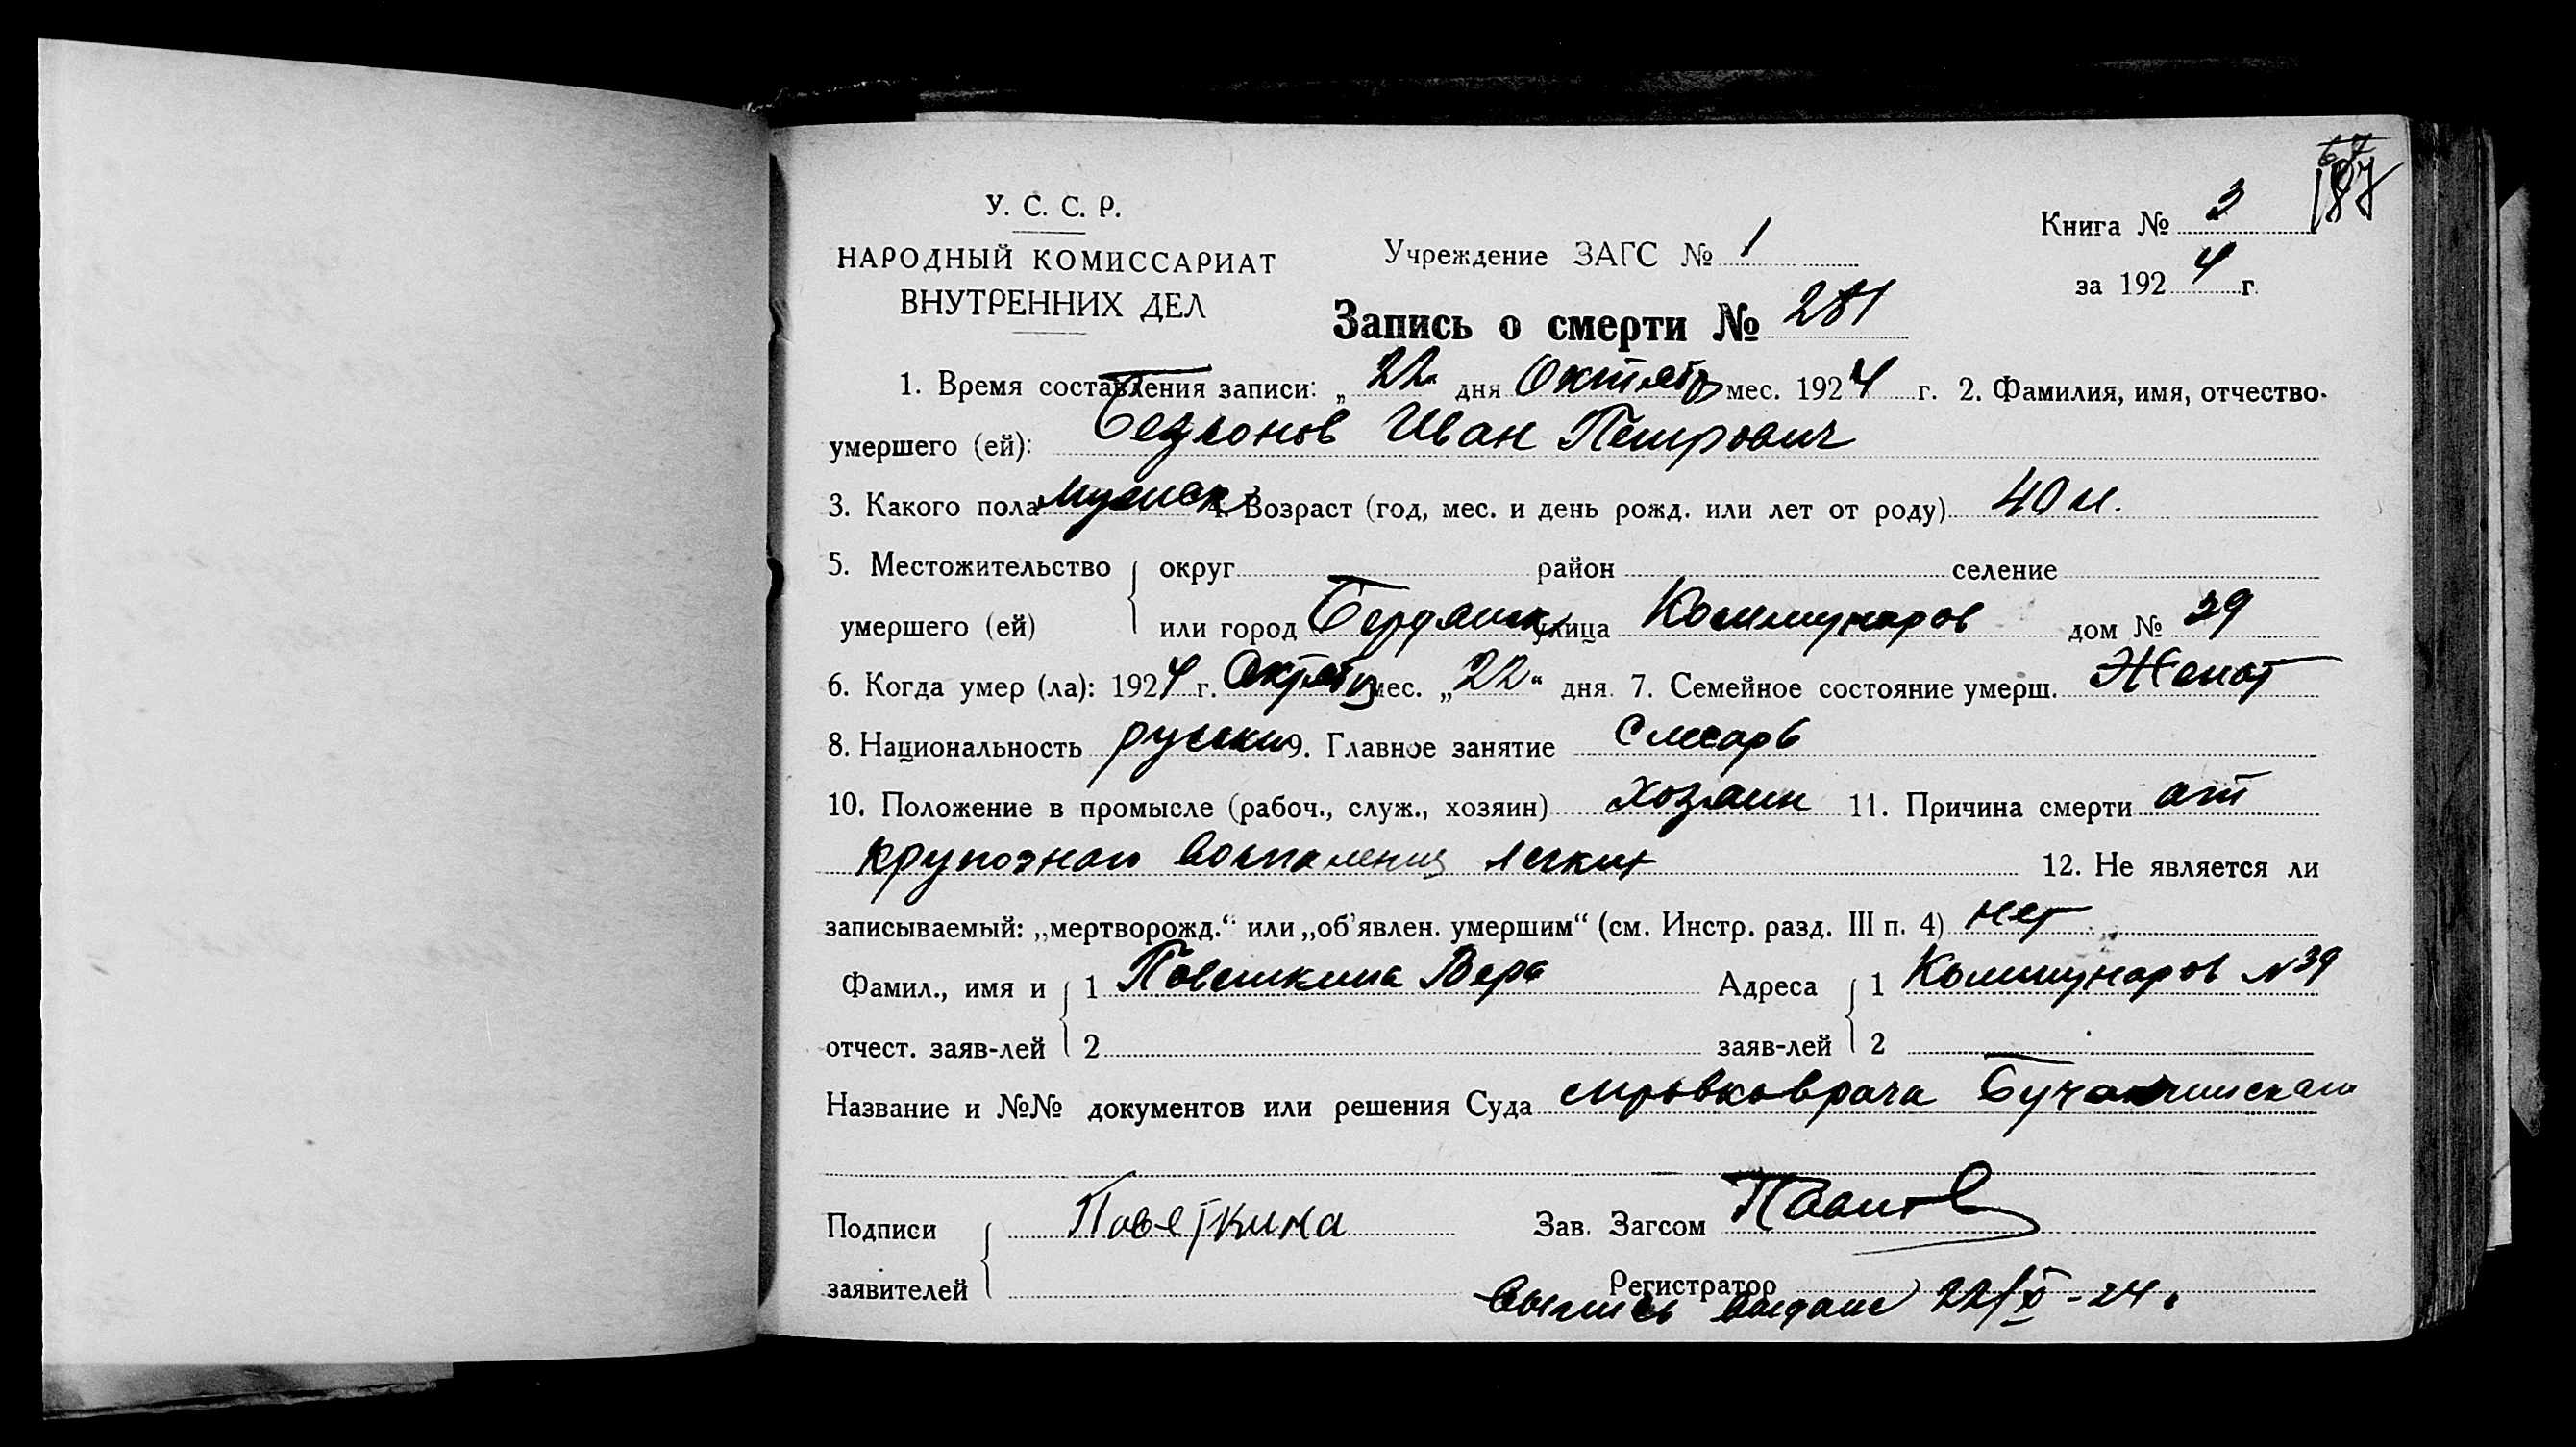 187
У. С. С. Р.
НАРОДНЫЙ КОМИССАРИАТ
ВНУТРЕННИХ ДЕЛ
Учреждение ЗАГС № 1
Книга № 3
за 1924 г.
Запись о смерти № 281
1. Время составления записи: „22“ дня Октябр мес. 1924 г. 2. Фамилия, имя, отчество
умершего (ей): Иван Петрович
3. Какого пола мужск 4. Возраст (год, мес. и день рожд. или лет от роду) 40 л.
5. Местожительство округ район селение
умершего (ей) или город Бердянск улица Коммунаров дом № 39
6. Когда умер (ла): 1924 г. Октябр мес. „22“ дня. 7. Семейное состояние умерш. Женат
8. Национальность русский 9. Главное занятие Слесарь
10. Положение в промысле (рабоч., служ., хозяин) хозяин 11. Причина смерти от
крупозного воспаления легких 12. Не является ли
записываемый: „мертворожд.“ или „об'явлен. умершим“ (см. Инстр. разд. III п. 4) нет
Фамил., имя и 1 Поветкина Вера Адреса 1 Коммунаров №39
отчест. заяв-лей 2 заяв-лей 2
Название и №№ документов или решения Суда справка врача
Подписи Поветкина Зав. Загсом
заявителей Регистратор
Выпись выдана 22/X-24.